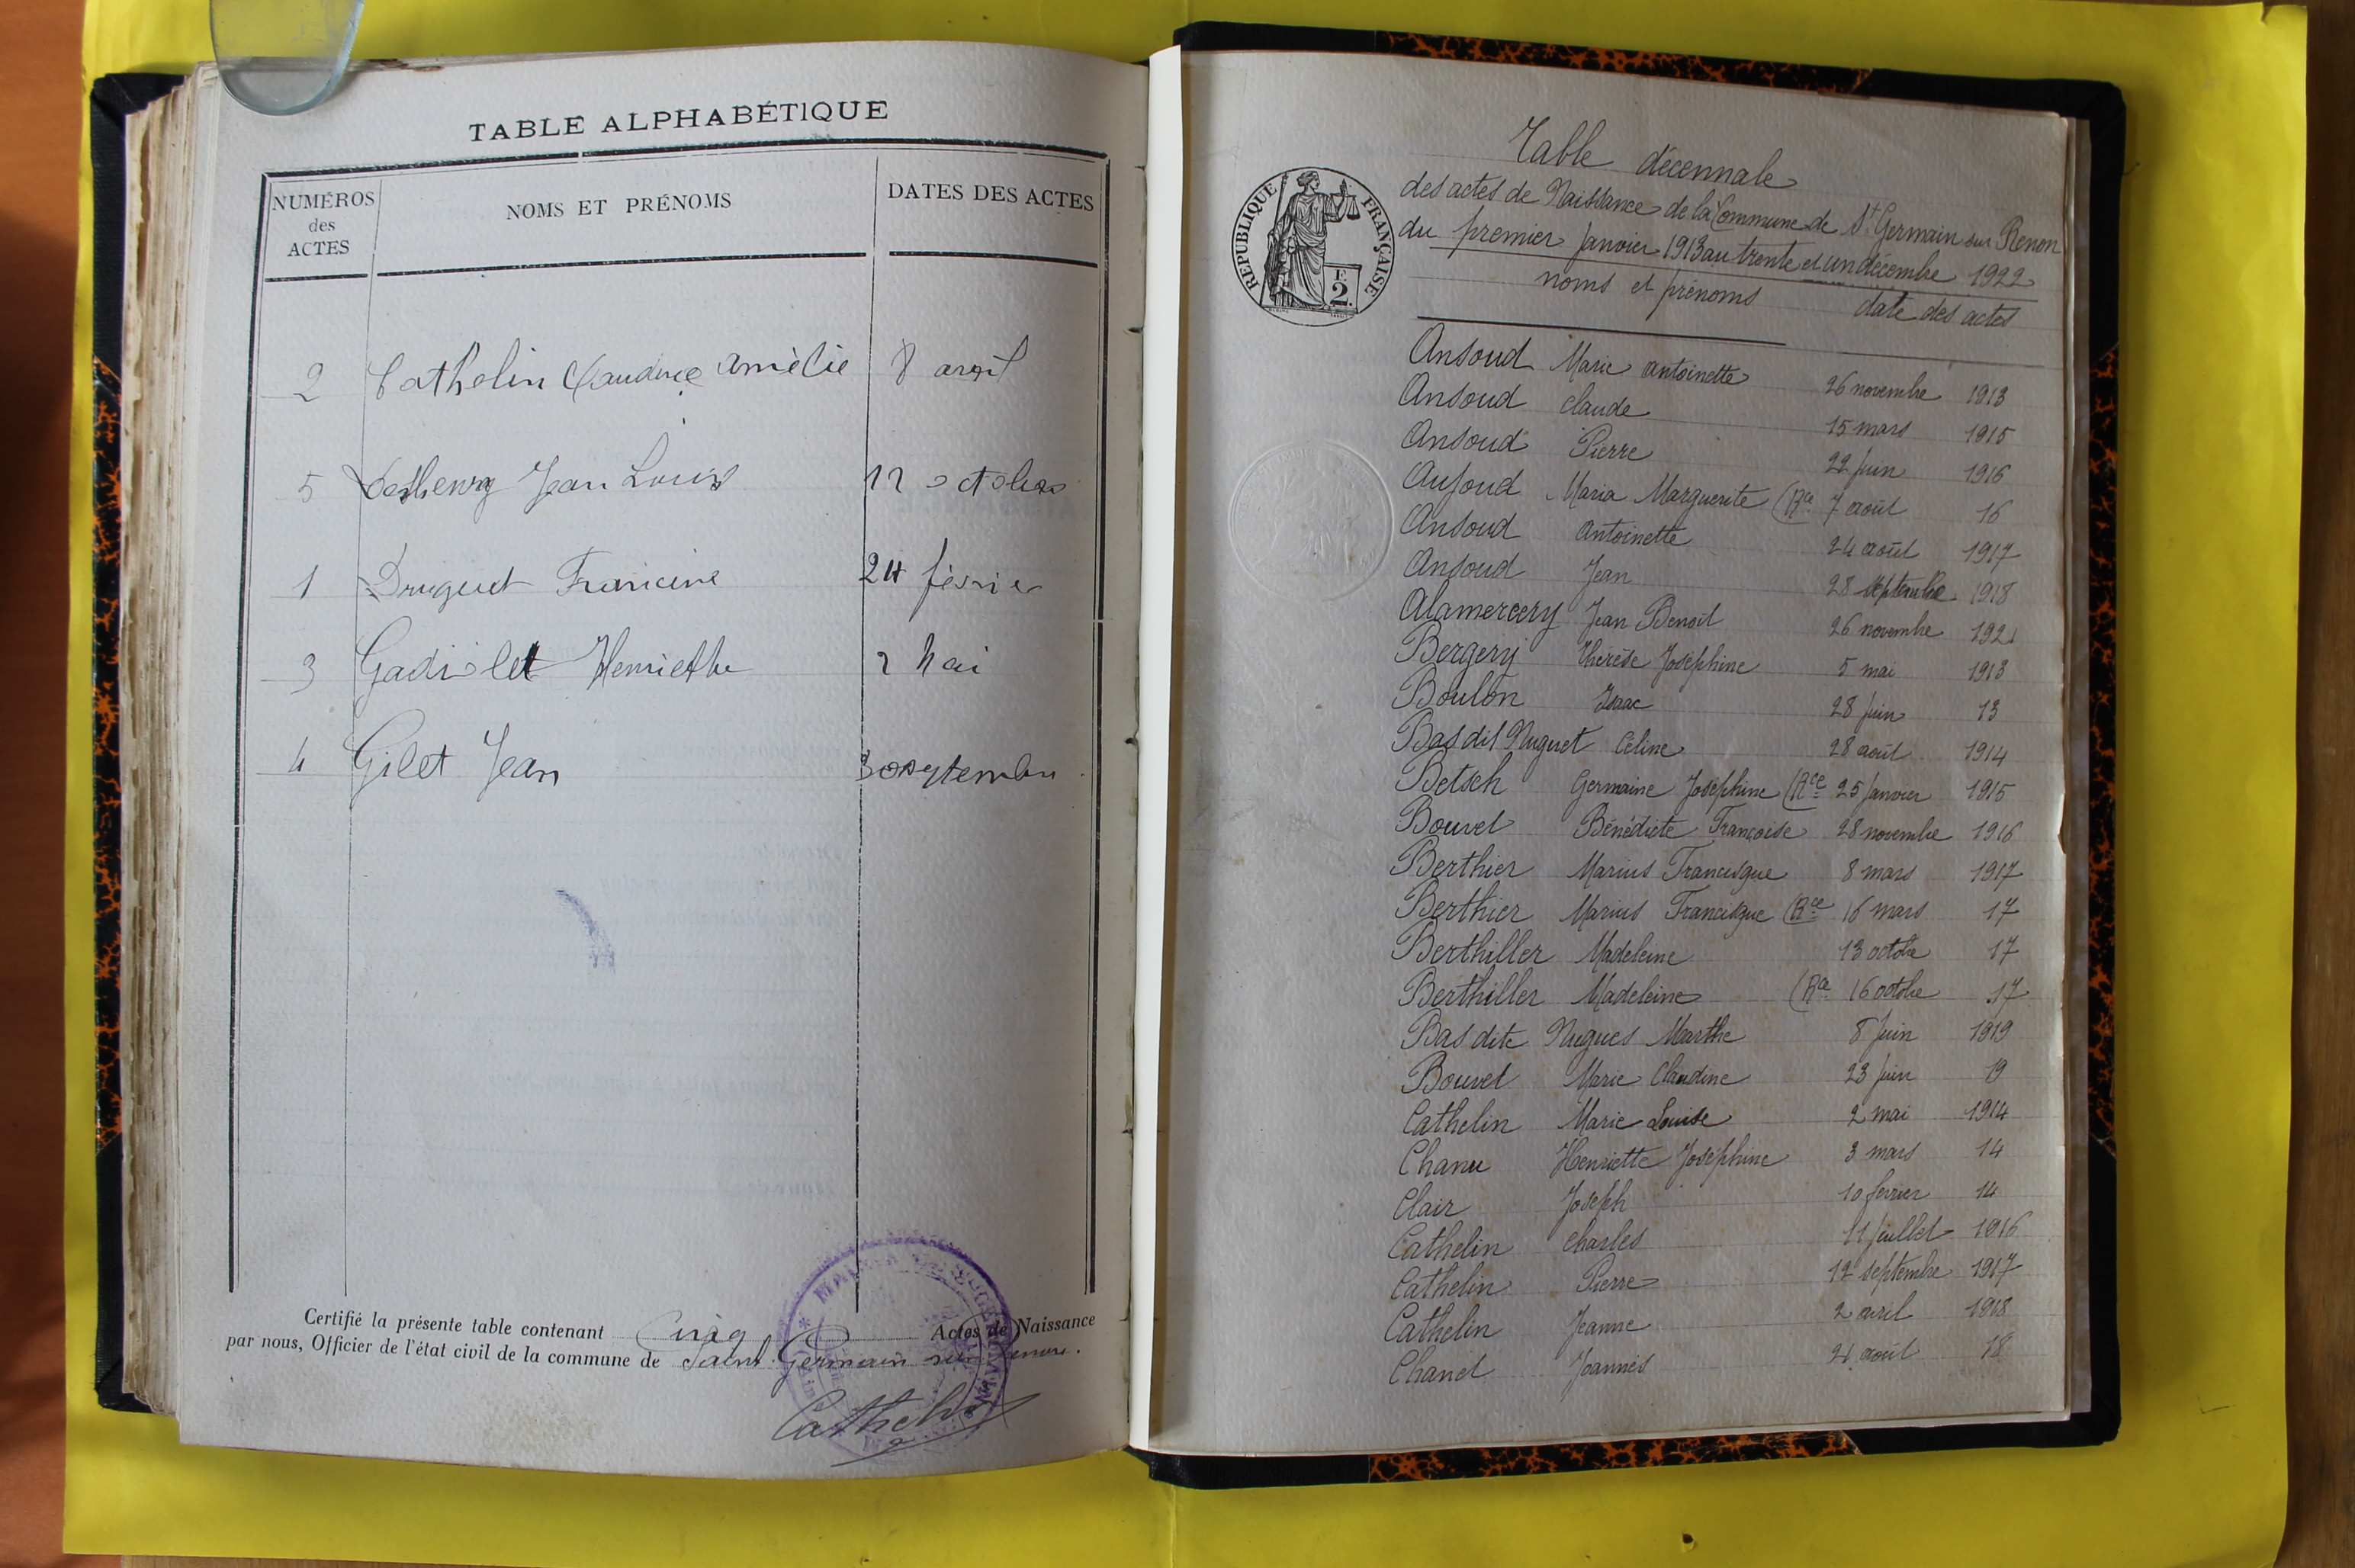 TABLE ALPHABÉTIQUE
NUMÉROS
des
ACTES
NOMS ET PRÉNOMS
DATES DES ACTES
2 Cathelin Claudine Amélie 8 avril
5 Jean Louis 12 octobre
1 Druguet Francine 24 février
3 Gadiolet Henriette 2 Mai
4 Gilet Jean 30 septembre
Certifié la présente table contenant Cinq Actes de Naissance
par nous, Officier de l'état civil de la commune de Saint Germain sur Renon.
Cathelin
Table décennale
RÉPUBLIQUE FRANÇAISE
2
des actes de Naissance de la Commune de St Germain sur Renon
du premier Janvier 1913 au trente et un décembre 1922
noms et prénoms date des actes
Ansoud Marie Antoinette 26 novembre 1913
Ansoud Claude 15 mars 1915
Ansoud Pierre 22 Juin 1916
Aujoud Maria Marguerite (Rce 7 août 16
Ansoud Antoinette 24 août 1917
Ansoud Jean 28 septembre 1918
Alamercery Jean Benoit 26 novembre 1921
Bergery Thérèse Joséphine 5 mai 1913
Boulon Isaac 28 Juin 13
Bas dit Nuguet Céline 28 août 1914
Betsch Germaine Joséphine (Rce 25 Janvier 1915
Bouvet Bénédicte Françoise 28 novembre 1916
Berthier Marius Francisque 8 mars 1917
Berthier Marius Francisque (Rce 16 mars 17
Berthiller Madeleine 13 octobre 17
Berthiller Madeleine (Rce 16 octobre 17
Bas dite Nugues Marthe 8 Juin 1919
Bouvet Marie Claudine 23 Juin 19
Cathelin Marie Louise 2 mai 1914
Chanu Henriette Joséphine 3 mars 14
Clair Joseph 10 février 14
Cathelin Charles 11 Juillet 1916
Cathelin Pierre 12 septembre 1917
Cathelin Jeanne 2 avril 1918
Chanel Joannès 21 août 18